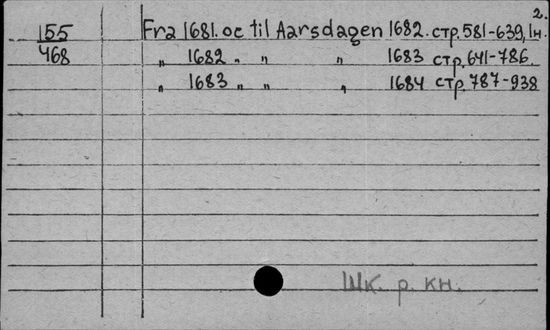 2.
155 Fra 1681. oc til Aarsdagen 1682. стр. 581-639, 1н.
468 „ 1682 „ „ „ 1683 стр. 641-786.
„ 1683 „ „ „ 1684 стр. 787-938
Шк. р. кн.